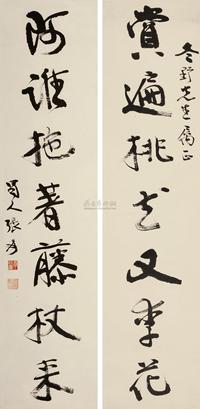 冬野先生屬正
賞遍桃花又李花
阿誰拖著藤杖来
蜀人張爰